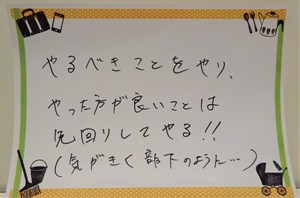 やるべきことをやり、
やった方が良いことは
先回りしてやる!!
(気がきく部下のように…)